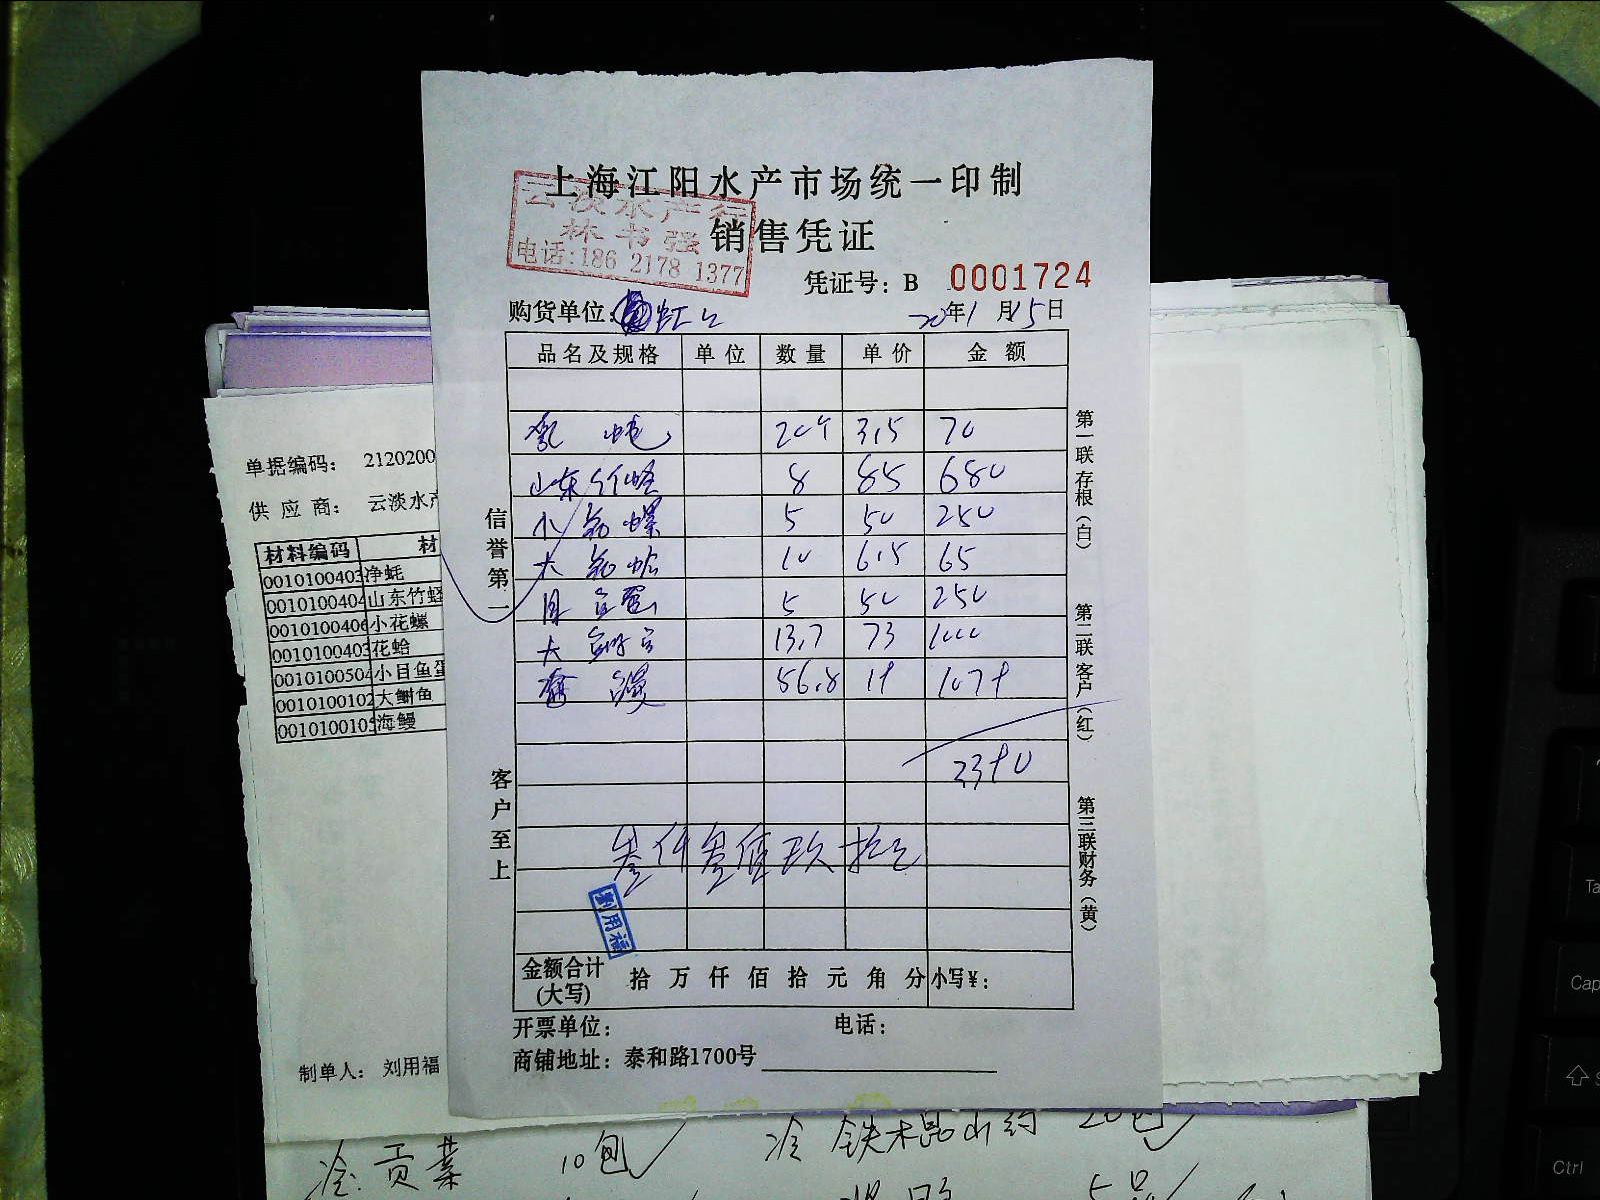 上海江阳水产市场统一印制
云淡水产行
林书强
电话:186 2178 1377
销售凭证
凭证号：B 0001724
购货单位： 虹口
20年1月15日
品名及规格 单位 数量 单价 金额
20个 3.5 70
山东竹蛏 8 85 680
小花螺 5 50 250
大花蛤 10 6.5 65
目鱼蛋 5 50 250
大 13.7 73 1000
海鳗 56.8 19 1079
3390
叁仟叁佰玖拾元
刘用福
金额合计(大写) 拾 万 仟 佰 拾 元 角 分 小写¥：
开票单位： 电话：
商铺地址：泰和路1700号
信誉第一
客户至上
第一联存根（白）
第二联客户（红）
第三联财务（黄）
单据编码： 2120200
供应商： 云淡水产
材料编码 材
0010100403 净蚝
0010100404 山东竹蛏
0010100406 小花螺
0010100403 花蛤
0010100504 小目鱼蛋
0010100102 大鮰鱼
0010100105 海鳗
制单人： 刘用福
冷贡菜 10包
冷 铁木昆山药 20包
Cap
Ctrl